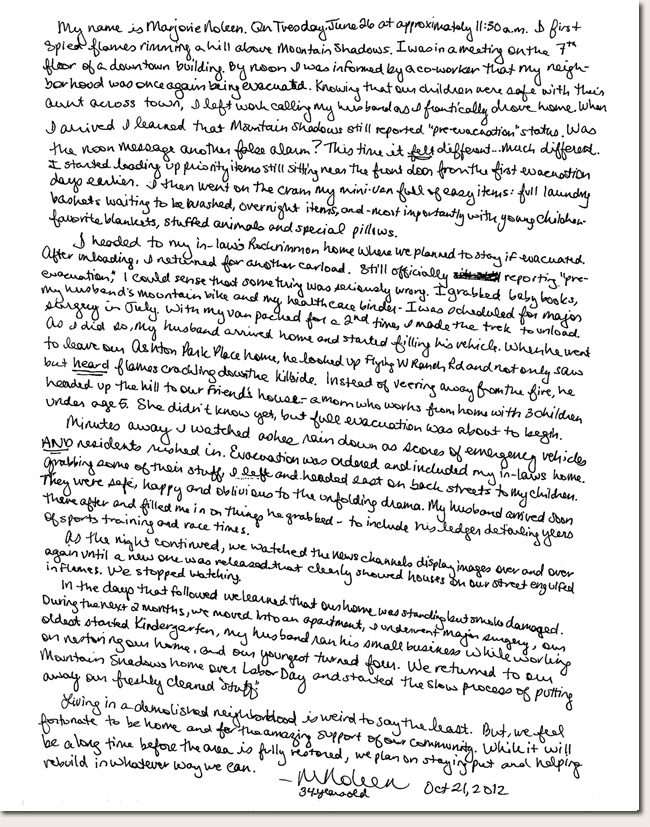 My name is Marjorie Noleen. On Tuesday, June 26 at approximately 11:30 a.m. I first
spied flames rimming a hill above Mountain Shadows. I was in a meeting on the 7th
floor of a downtown building. By noon I was informed by a co-worker that my neigh-
borhood was once again being evacuated. Knowing that our children were safe with their
aunt across town, I left work calling my husband as I frantically drove home. When
I arrived I learned that Mountain Shadows still reported "pre-evacuation" status. Was
the noon message another false alarm? This time it felt different...much different.
I started loading up priority items still sitting near the front door from the first evacuation
days earlier. I then went on the cram my mini-van full of easy items: full laundry
baskets waiting to be washed, overnight items, and - most importantly with young children -
favorite blankets, stuffed animals and special pillows.
I headed to my in-law's Rockrimmon home where we planned to stay if evacuated.
After unloading, I returned for another carload. Still officially reporting "pre-
evacuation," I could sense that something was seriously wrong. I grabbed baby books,
my husband's mountain bike and my healthcare binder - I was scheduled for major
surgery in July. With my van packed for a 2nd time, I made the trek to unload.
As I did so, my husband arrived home and started filling his vehicle. When he went
to leave our Ashton Park Place home, he looked up Flying W Ranch Rd and not only saw
but heard flames crackling down the hillside. Instead of veering away from the fire, he
headed up the hill to our friend's house - a mom who works from home with 3 children
under age 5. She didn't know yet, but full evacuation was about to begin.
Minutes away I watched ashes rain down as scores of emergency vehicles
AND residents rushed in. Evacuation was ordered and included my in-laws home.
Grabbing some of their stuff I left and headed east on back streets to my children.
They were safe, happy and oblivious to the unfolding drama. My husband arrived soon
there after and filled me in on things he grabbed - to include his ledger detailing years
of sports training and race times.
As the night continued, we watched the news channels display images over and over
again until a new one was released that clearly showed houses on our street engulfed
in flames. We stopped watching.
In the days that followed we learned that our home was standing but smoke damaged.
During the next 2 months, we moved into an apartment, I underwent major surgery, our
oldest started Kindergarten, my husband ran his small business while working
on restoring our home, and our youngest turned four. We returned to our
Mountain Shadows home over Labor Day and started the slow process of putting
away our freshly cleaned "stuff."
Living in a demolished neighborhood is weird to say the least. But, we feel
fortunate to be home and for the amazing support of our community. While it will
be a long time before the area is fully restored, we plan on staying put and helping
rebuild in whatever way we can.
- MNoleen
34 years old
Oct 21, 2012